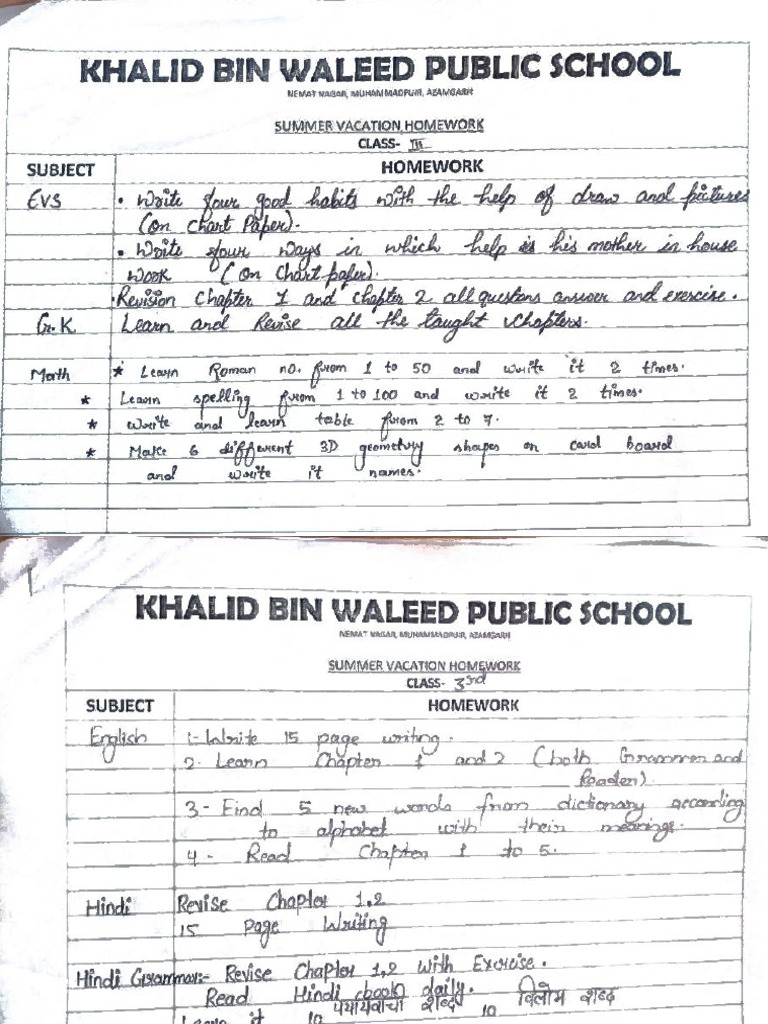 KHALID BIN WALEED PUBLIC SCHOOL
NEMAT NAGAR, MUHAMMADPUR, AZAMGARH
SUMMER VACATION HOMEWORK
CLASS- III
SUBJECT HOMEWORK
EVS • Write four good habits with the help of draw and pictures
(on chart Paper).
• Write four ways in which help is his mother in house
work (on Chart paper).
• Revision Chapter 1 and chapter 2 all questons answer and exercise.
G.K Learn and Revise all the taught Chapters.
Math * Learn Roman no. from 1 to 50 and write it 2 times.
* Learn spelling from 1 to 100 and write it 2 times.
* write and learn table from 2 to 7.
* Make 6 different 3D geometry shapes on card board
and write it names.
KHALID BIN WALEED PUBLIC SCHOOL
NEMAT NAGAR, MUHAMMADPUR, AZAMGARH
SUMMER VACATION HOMEWORK
CLASS- 3rd
SUBJECT HOMEWORK
English 1- Write 15 page writing.
2- Learn Chapter 1 and 2 (both Grammer and
Reader).
3- Find 5 new words from dictionary according
to alphabet with their meanings.
4- Read Chapter 1 to 5.
Hindi Revise Chapter 1,2
15 Page Writing
Hindi Grammar:- Revise Chapter 1,2 with Exercise.
Read Hindi book daily.
Learn it 10 शब्द 10 विलोम शब्द